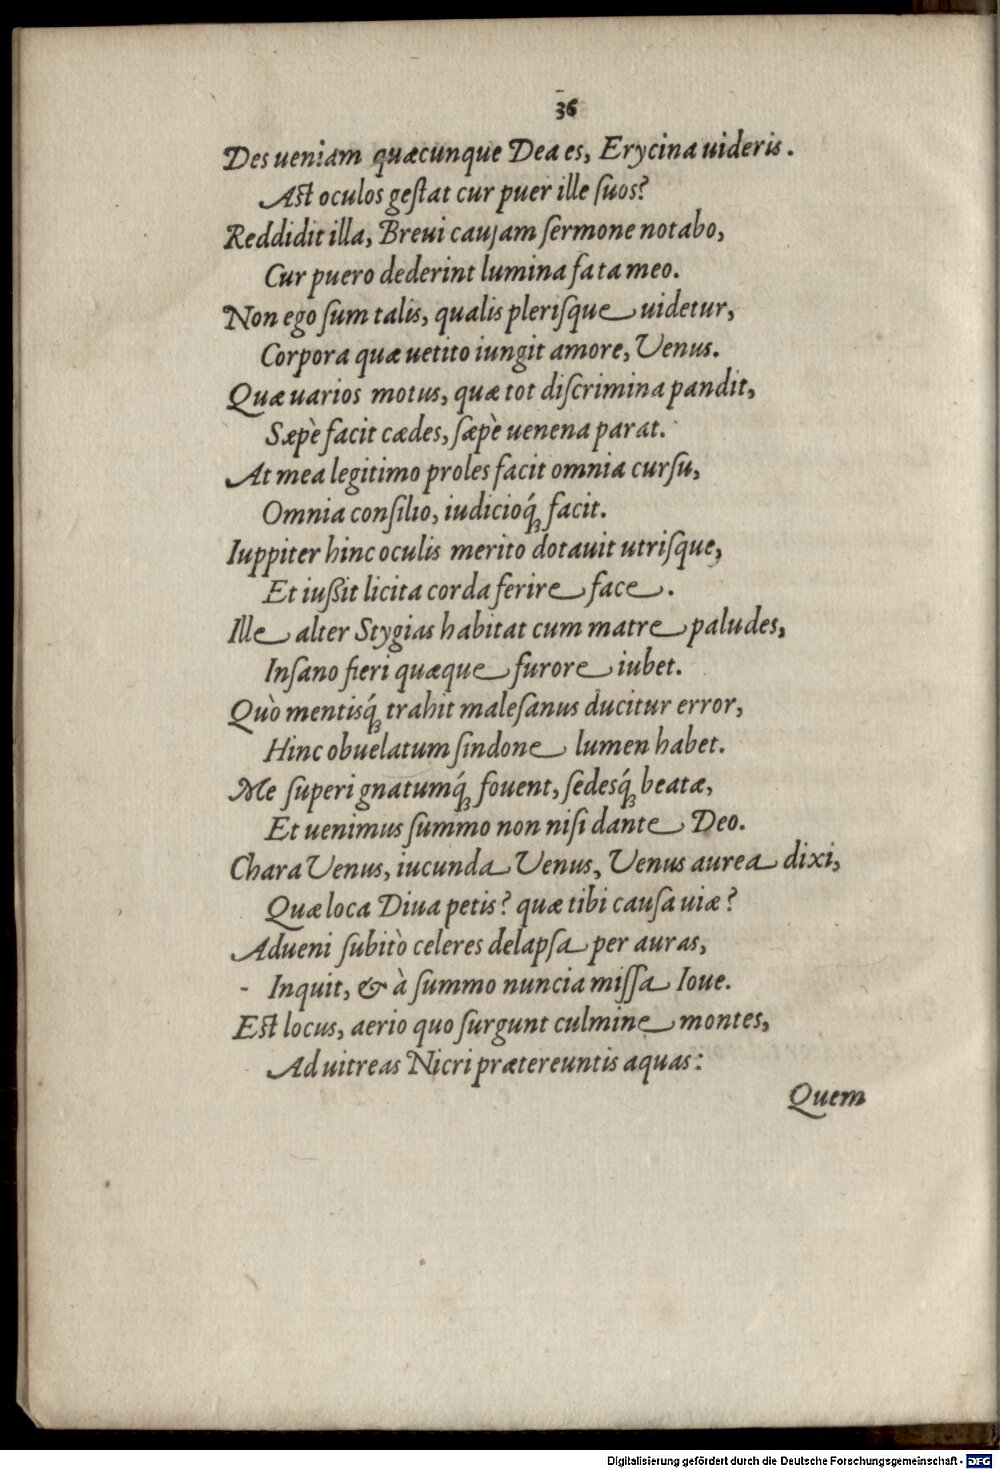 36
Des ueniam quæcunque Dea es, Erycina uideris.
Ast oculos gestat cur puer ille suos?
Reddidit illa, Breui causam sermone notabo,
Cur puero dederint lumina fata meo.
Non ego sum talis, qualis plerisque uidetur,
Corpora quæ uetito iungit amore, Venus.
Quæ uarios motus, quæ tot discrimina pandit,
Sæpè facit cædes, sæpè uenena parat.
At mea legitimo proles facit omnia cursu,
Omnia consilio, iudicioq́ꝫ facit.
Iuppiter hinc oculis merito dotauit utrisque,
Et iußit licita corda ferire face.
Ille alter Stygias habitat cum matre paludes,
Insano fieri quæque furore iubet.
Quò mentisq́ꝫ trahit malesanus ducitur error,
Hinc obuelatum sindone lumen habet.
Me superi gnatumq́ꝫ fouent, sedesq́ꝫ beatæ,
Et uenimus summo non nisi dante Deo.
Chara Venus, iucunda Venus, Venus aurea dixi,
Quæ loca Diua petis? quæ tibi causa uiæ?
Adueni subitò celeres delapsa per auras,
- Inquit, & à summo nuncia missa Ioue.
Est locus, aerio quo surgunt culmine montes,
Ad uitreas Nicri prætereuntis aquas:
Quem
Digitalisierung gefördert durch die Deutsche Forschungsgemeinschaft - DFG